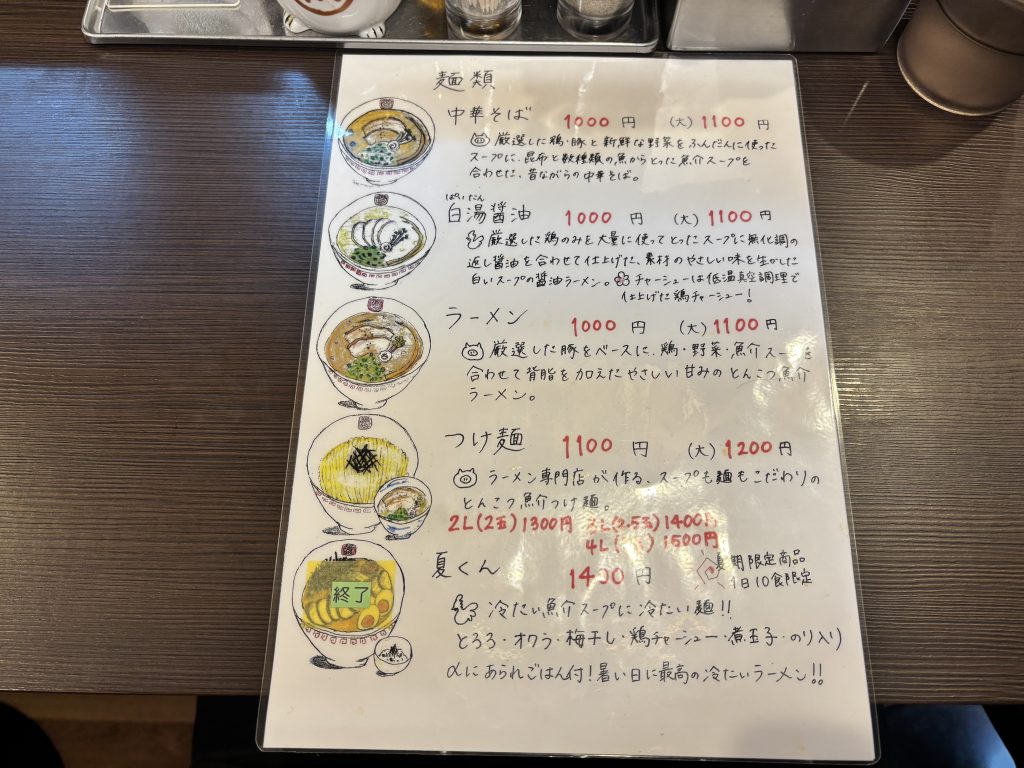 麺類
中華そば 1000円 (大) 1100円
厳選した鶏・豚と新鮮な野菜をふんだんに使った
スープに、昆布と数種類の魚からとった魚介スープを
合わせた、昔ながらの中華そば。
ぱいたん
白湯醤油 1000円 (大) 1100円
厳選した鶏のみを大量に使ってとったスープに無化調の
返し醤油を合わせて仕上げた、素材のやさしい味を生かした
白いスープの醤油ラーメン。チャーシューは低温真空調理で
仕上げた鶏チャーシュー!
ラーメン 1000円 (大) 1100円
厳選した豚をベースに、鶏・野菜・魚介スープを
合わせて背脂を加えたやさしい甘みのとんこつ魚介
ラーメン。
つけ麺 1100円 (大) 1200円
ラーメン専門店が作る、スープも麺もこだわりの
とんこつ魚介つけ麺。
2L(2玉)1300円 3L(2.5玉)1400円
4L 1500円
夏くん 1400円 夏期限定商品
1日10食限定
終了
冷たい魚介スープに冷たい麺!!
とろろ・オクラ・梅干し・鶏チャーシュー・煮玉子・のり入り
αにあられごはん付!暑い日に最高の冷たいラーメン!!